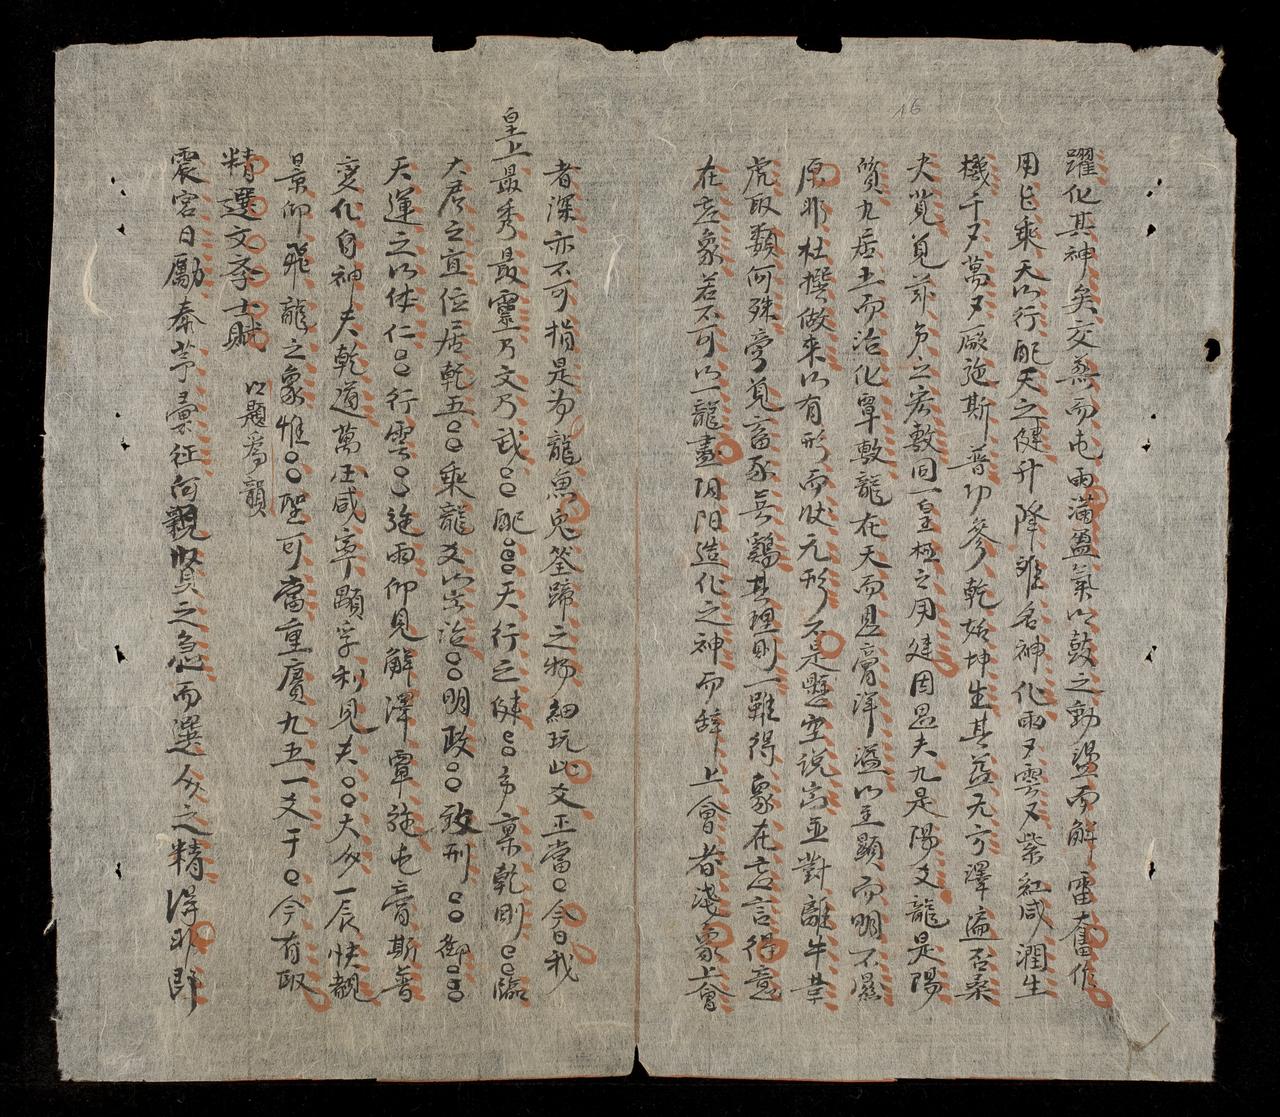 躍化其神矣交蒸而屯雨滿盈氣以鼓之動盪而解雷奮作
用乜乘天以行配天之健升降难名神化雨又雲又紫紅咸潤生
機千又萬又厥施斯普功參乾始坤生其益无方澤遍否桑
夬莧見茲象之宏敷同一皇極之用建因思夫九是陽爻龍是陽
質九居五而洽化覃敷龍在天而恩膏洋溢以至顯而明不隰
原非杜撰做來以有形而狀无形不是懸空說宀並對離牛革
虎取類何殊旁見畜豕兵鷄其理則一雖得象在忘言得意
在忘象若不可以一龍盡阴阳造化之神而辞上會者淺象上會
者深亦不可捐是为龍魚兔筌蹄之物細玩此爻正當今日我
皇上最秀最靈乃文乃武配天行之健方稟乾剛臨
大居之宜位居乾五乘龍爻以出治明政致刑御
天運之以体仁行雲施雨仰見解澤覃施屯膏斯普
变化自神夫乾道萬国咸寧顒孚利見夫大分一辰快覩
景仰飛龍之象惟聖可當重賡九五一爻于今有取
精選文學士賦 以題爲韻
震宮日勵泰茅彙征向親賢之急而選分之精得即